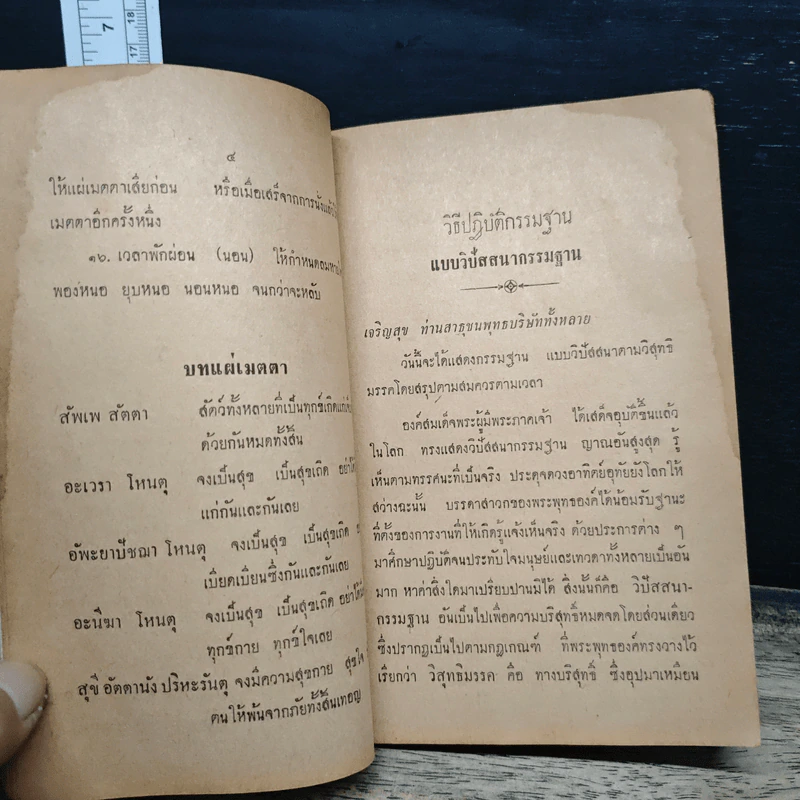 7
18
17
๔
ให้แผ่เมตตาเสียก่อน หรือเมื่อเสร็จจากการนั่งแล้ว
เมตตาอีกครั้งหนึ่ง
๑๖. เวลาพักผ่อน (นอน) ให้กำหนดลมหาย
พองหนอ ยุบหนอ นอนหนอ จนกว่าจะหลับ
บทแผ่เมตตา
สัพเพ สัตตา สัตว์ทั้งหลายที่เป็นทุกข์เกิดแก่
ด้วยกันหมดทั้งสิ้น
อะเวรา โหนตุ จงเป็นสุข เป็นสุขเถิด อย่าได้
แก่กันและกันเลย
อัพะยาปัชฌา โหนตุ จงเป็นสุข เป็นสุขเถิด
เบียดเบียนซึ่งกันและกันเลย
อะนีฆา โหนตุ จงเป็นสุข เป็นสุขเถิด อย่าได้
ทุกข์กาย ทุกข์ใจเลย
สุขี อัตตานัง ปริหะรันตุ จงมีความสุขกาย สุขใจ
ตนให้พ้นจากภัยทั้งสิ้นเทอญ
วิธีปฏิบัติกรรมฐาน
แบบวิปัสสนากรรมฐาน
เจริญสุข ท่านสาธุชนพุทธบริษัททั้งหลาย
วันนี้จะได้แสดงกรรมฐาน แบบวิปัสสนาตามวิสุทธิ
มรรคโดยสรุปตามสมควรตามเวลา
องค์สมเด็จพระผู้มีพระภาคเจ้า ได้เสด็จอุบัติขึ้นแล้ว
ในโลก ทรงแสดงวิปัสสนากรรมฐาน ญาณอันสูงสุด รู้
เห็นตามทรรศนะที่เป็นจริง ประดุจดวงอาทิตย์อุทัยยังโลกให้
สว่างฉะนั้น บรรดาสาวกของพระพุทธองค์ได้น้อมรับฐานะ
ที่ตั้งของการงานที่ให้เกิดรู้แจ้งเห็นจริง ด้วยประการต่าง ๆ
มาศึกษาปฏิบัติจนประทับใจมนุษย์และเทวดาทั้งหลายเป็นอัน
มาก หาค่าสิ่งใดมาเปรียบปานมิได้ สิ่งนั้นก็คือ วิปัสสนา-
กรรมฐาน อันเป็นไปเพื่อความบริสุทธิ์หมดจดโดยส่วนเดียว
ซึ่งปรากฏเป็นไปตามกฎเกณฑ์ ที่พระพุทธองค์ทรงวางไว้
เรียกว่า วิสุทธิมรรค คือ ทางบริสุทธิ์ ซึ่งอุปมาเหมือน